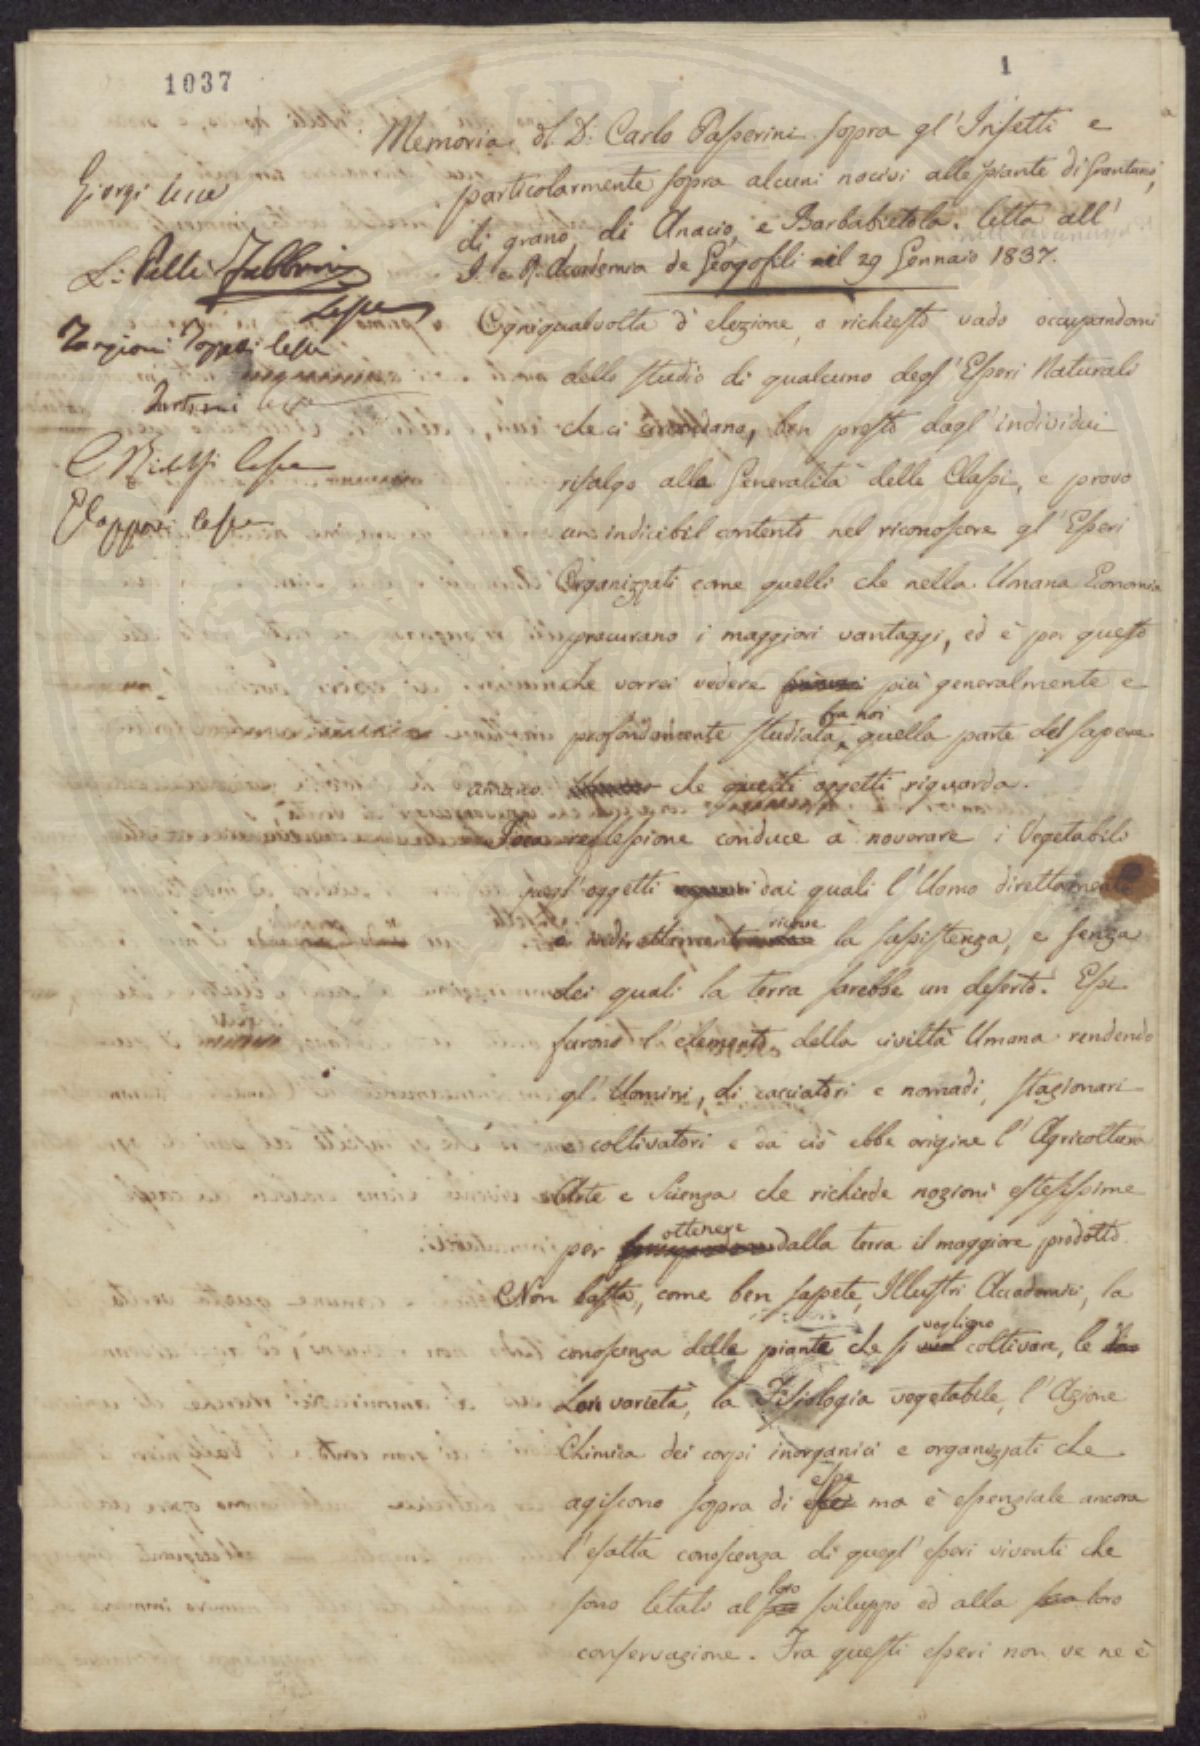 1037
1
Memoria del D. Carlo Passerini sopra gl' Insetti e
particolarmente sopra alcuni nocivi alle piante di Grantur
di grano, di Anacio, e Barbabietola. letta all'
I. e R. Accademia de Georgofili il 29 Gennaio 1837.
Giorgi lesse
L: Pelli Fabbroni
lesse
Targioni Tozzetti lesse
lesse
C Ridolfi lesse
Capponi lesse
Ogniqualvolta d' elezione, o richiesto vado occupandomi
dello studio di qualcuno degl' Esseri Naturali
che ci circondano, ben presto dagl' individui
risalgo alla Generalità delle Classi, e provo
un indicibil contento nel riconoscere gl' Esseri
Organizzati come quelli che nella Umana Economia
procurano i maggiori vantaggi, ed è per questo
che vorrei vedere più generalmente e
profondamente studiata fra noi quella parte del sapere
umano che questi oggetti riguarda.
Poca reflessione conduce a noverare i Vegetabili
fragl' oggetti dai quali l' Uomo direttamente
o indirettamente riceve la sussistenza, e senza
dei quali la terra sarebbe un deserto. Essi
furono l' elemento della civiltà Umana rendendo
gl' Uomini, di cacciatori e nomadi, stazionari
e coltivatori e da ciò ebbe origine l' Agricoltura
Arte e Scienza che richiede nozioni estesissime
per ottenere dalla terra il maggiore prodotto.
Non basta, come ben sapete, Illustri Accademici, la
conoscenza delle piante che si vogliono coltivare, le
loro varietà, la Fisiologia vegetabile, l' Azione
Chimica dei corpi inorganici e organizzati che
agiscono sopra di esse ma è essenziale ancora
l' esatta conoscenza di quegl' esseri viventi che
sono letali al loro sviluppo ed alla loro
conservazione. Fra questi esseri non ve ne è